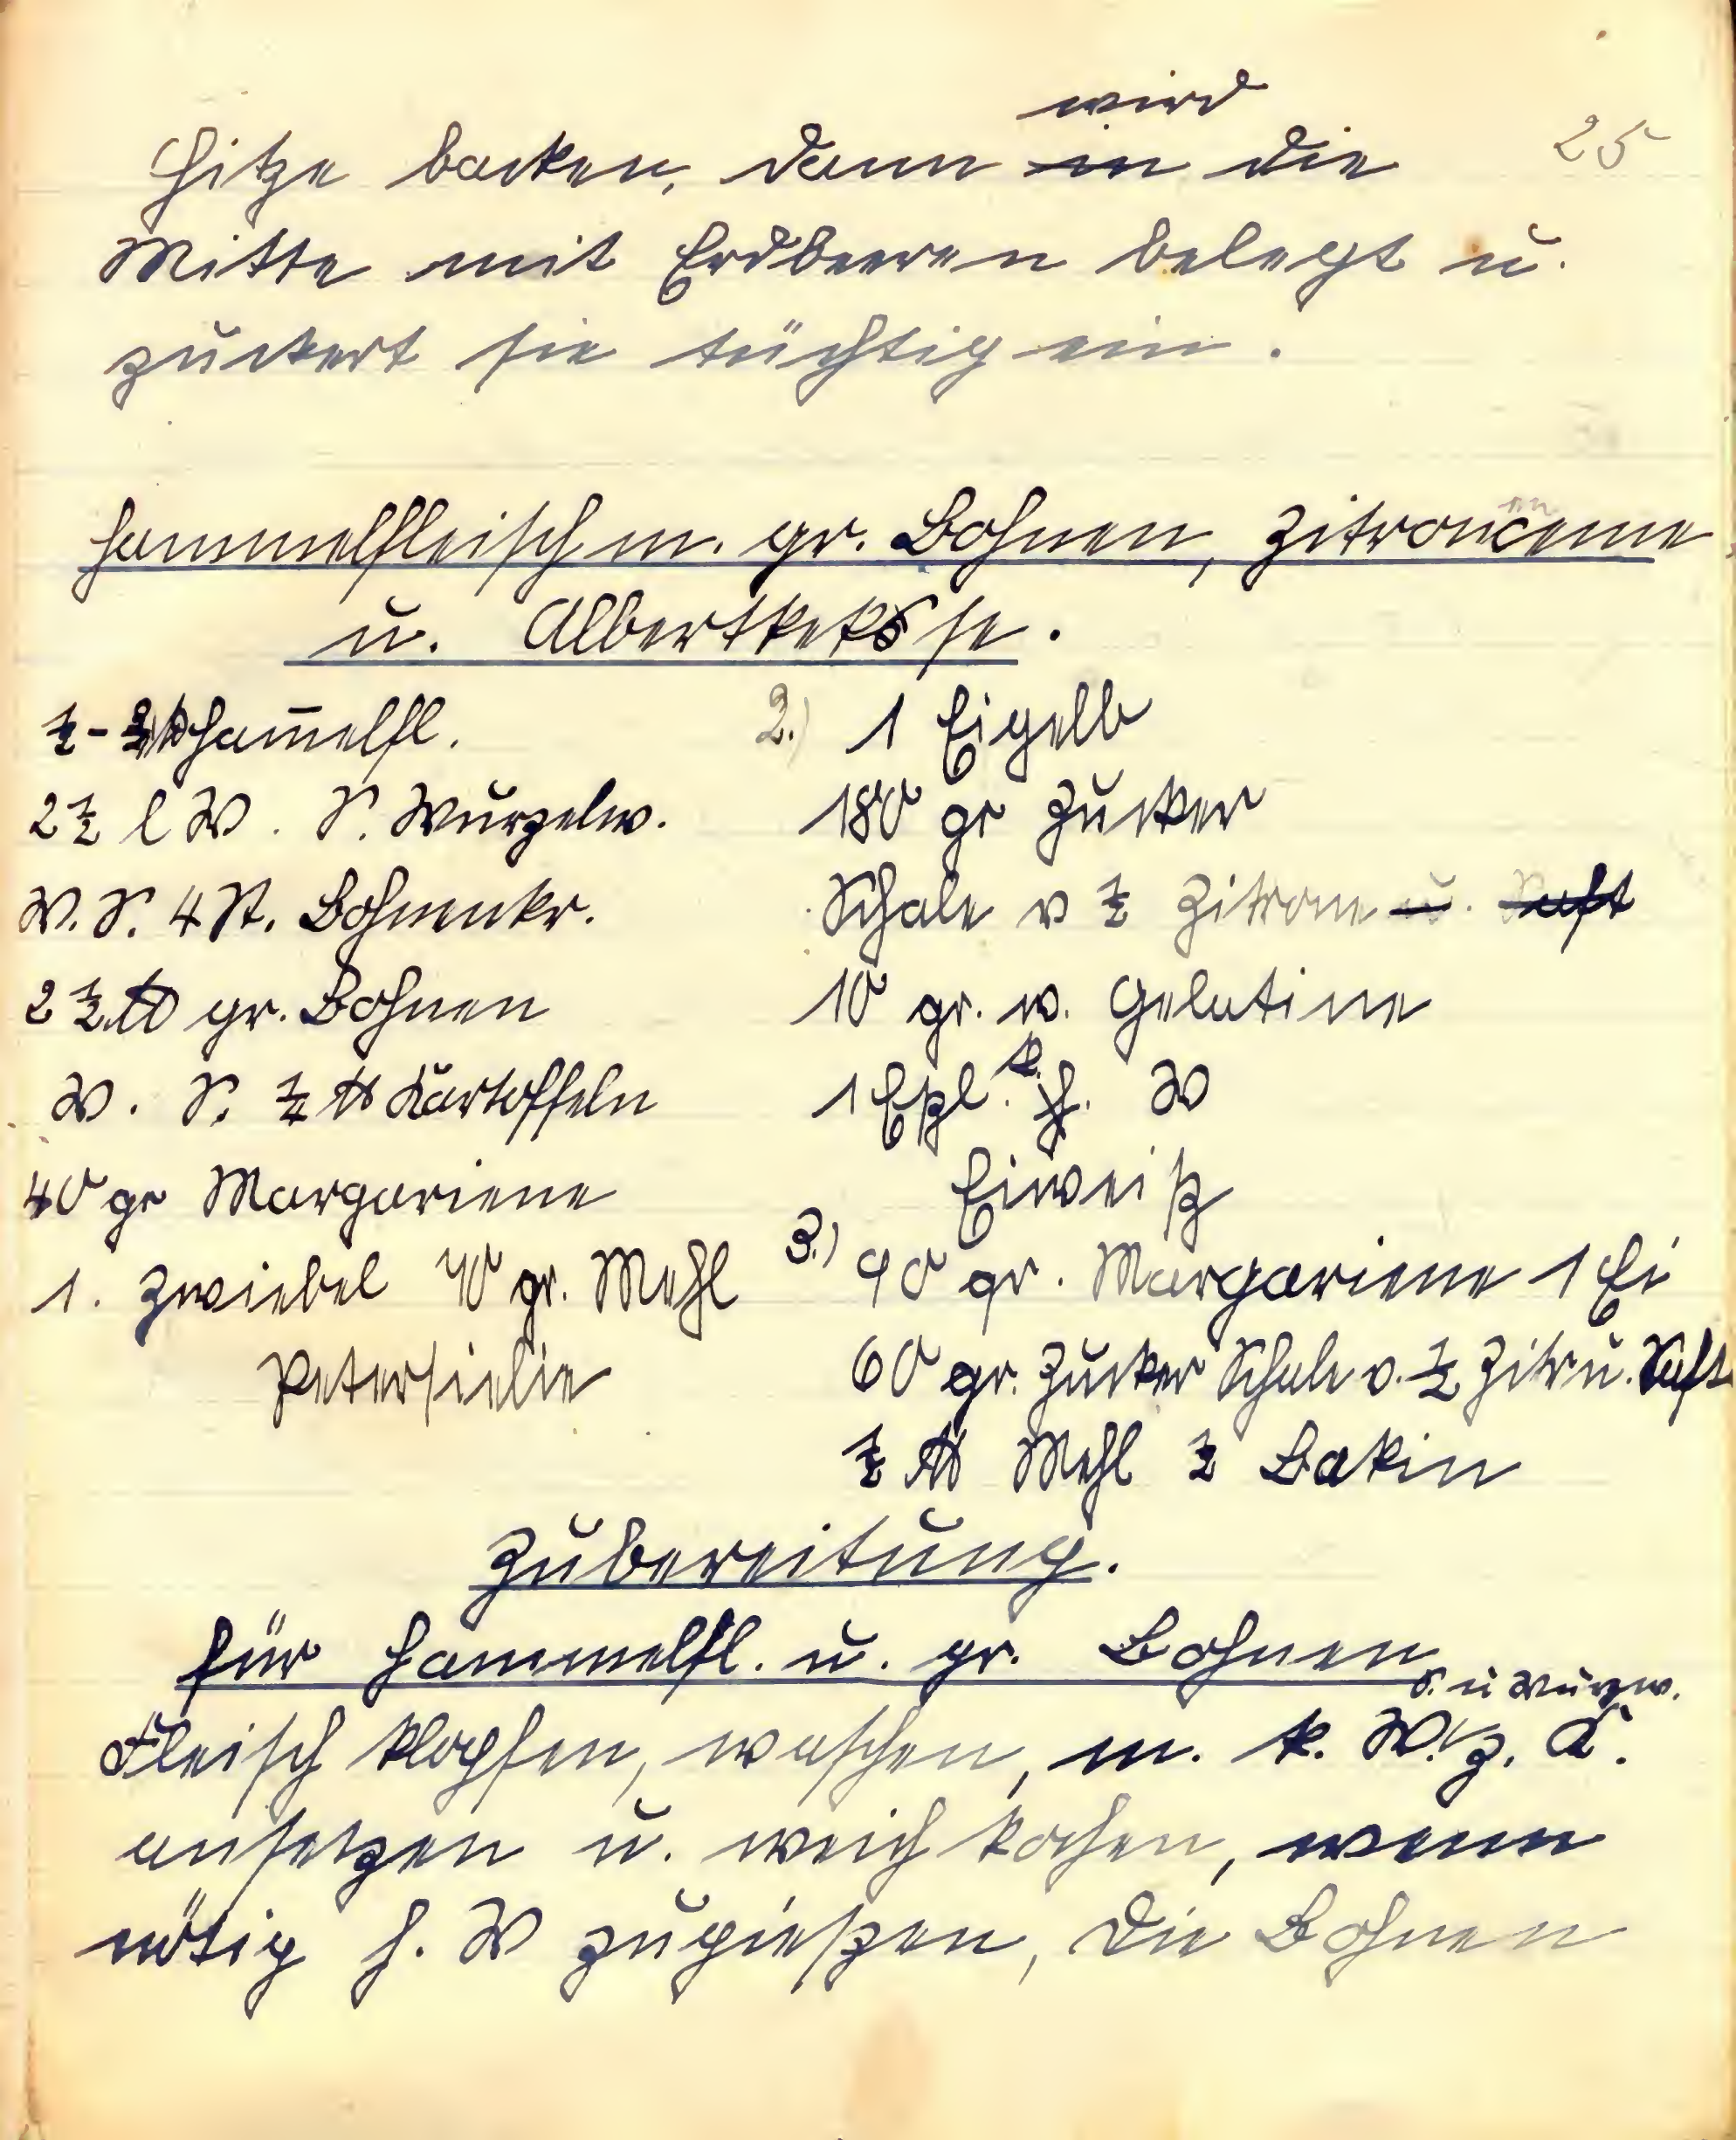 25
Hitze backen, dann wird die
Mitte mit Erdbeeren belegt u.
zuckert sie tüchtig ein.
Hammelfleisch m. gr. Bohnen, Zitronencreme
u. Albertkekse.
½ - ¾ ℔ Ham̄elfl.
2½ l W. S. Wurzelw.
W. S. 4 St. Bohnenkr.
2½ ℔ gr. Bohnen
W. S. ½ ℔ Kartoffeln
40 gr Margariene
1. Zwiebel 40 gr. Mehl
Petersielie
2.) 1 Eigelb
180 gr Zucker
Schale v ½ Zitrone u. Saft
10 gr. w. Gelatine
1 Eßl. k. W
Eiweiß
3.) 90 gr. Margariene 1 Ei
60 gr. Zucker Schale v. ½ Zitr u. Saft
½ ℔ Mehl ½ Bakin
Zubereitung.
für Hammelfl. u. gr. Bohnen
S. u Wurzw.
Fleisch klopfen, waschen, m. k. W. z. K.
ansetzen u. weich kochen, wenn
nötig h. W zugießen, die Bohnen